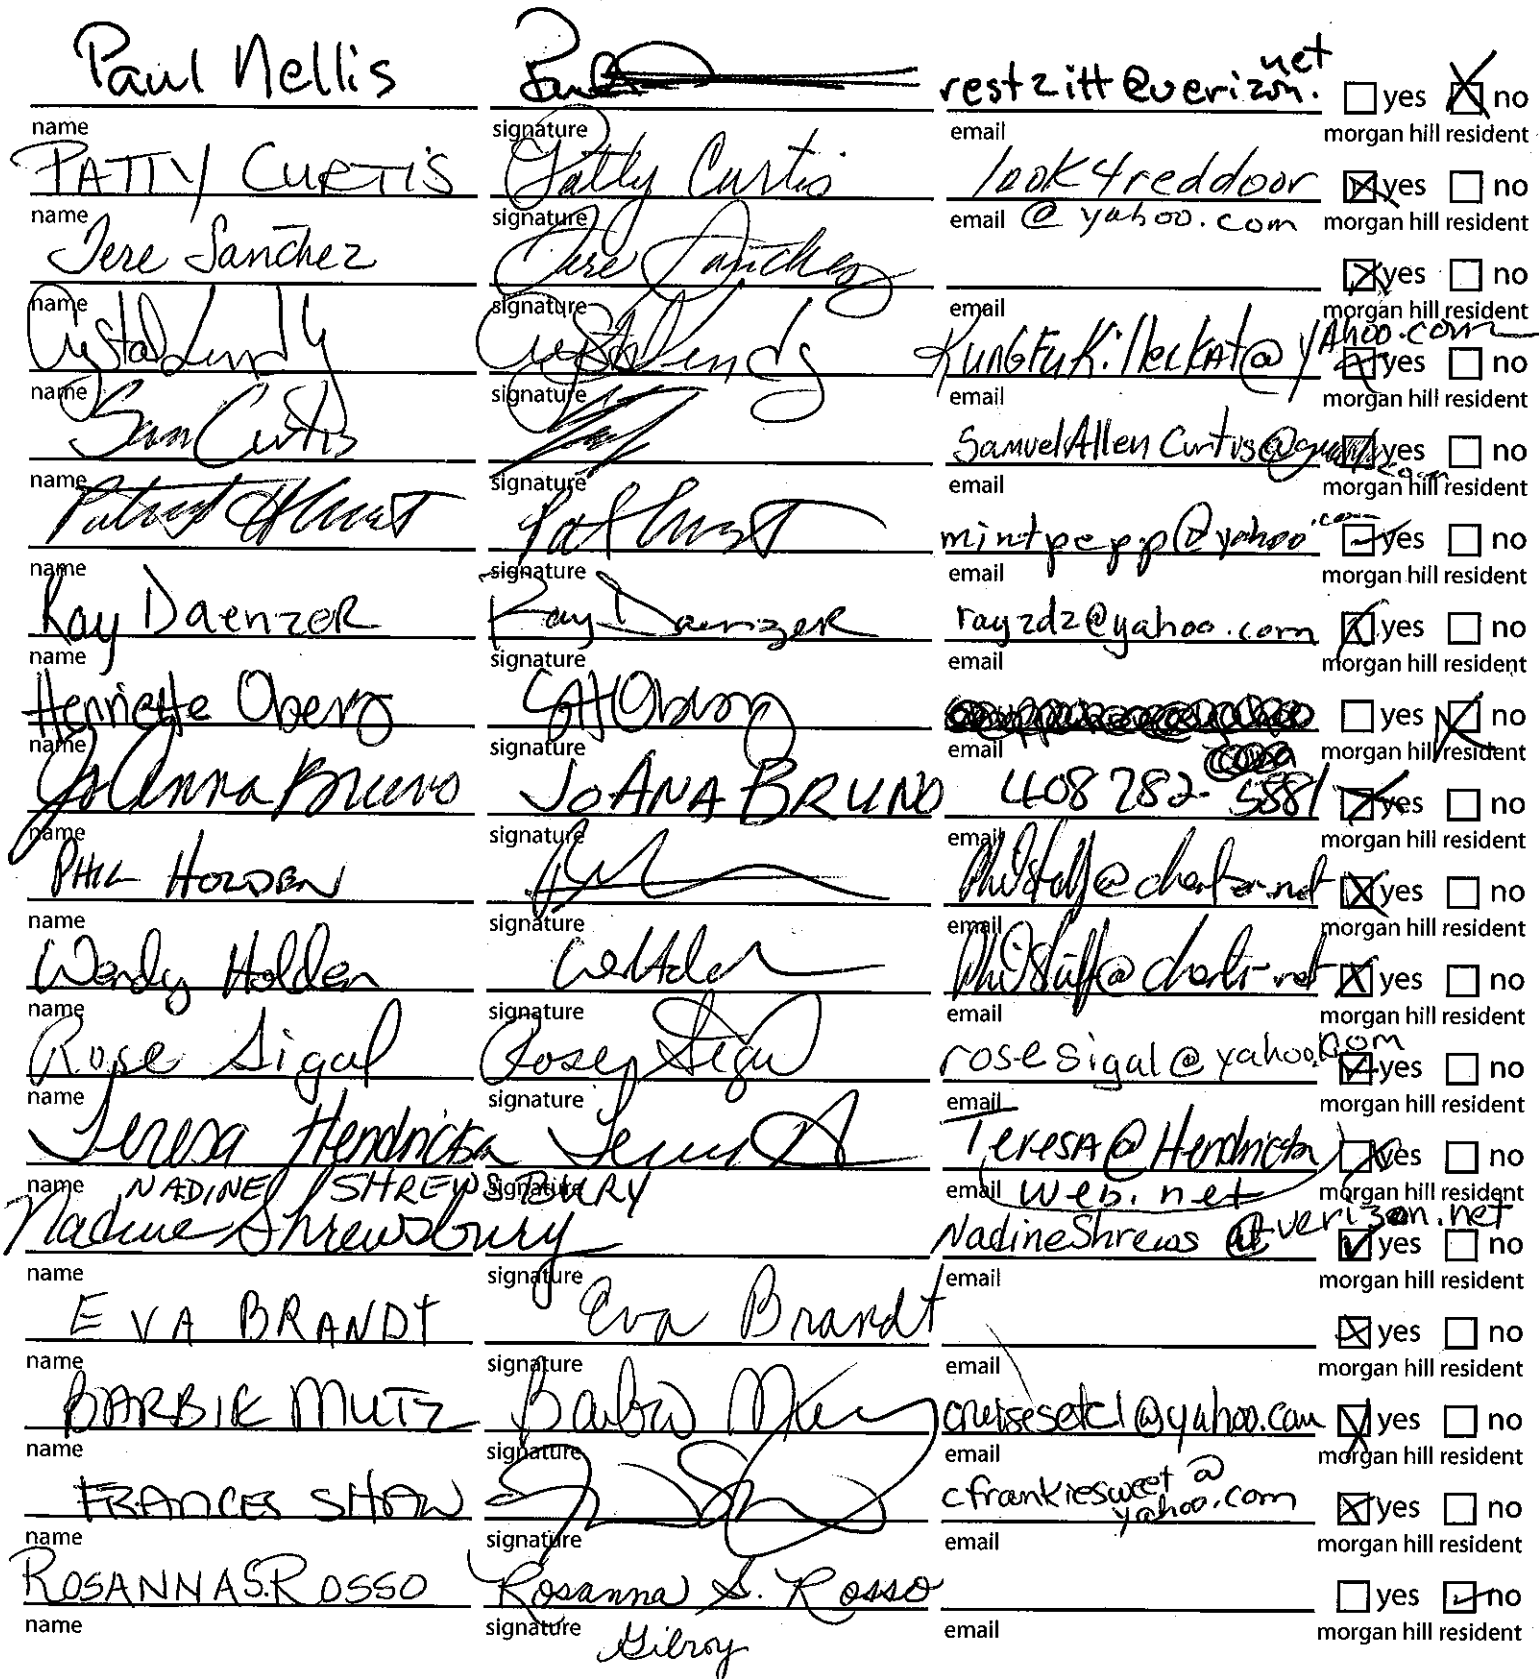 Paul Nellis restzitt@verizon.net yes no
name signature email morgan hill resident
PATTY CURTIS Patty Curtis look4reddoor yes no
name signature email @ yahoo.com morgan hill resident
Jere Sanchez Jere Sanchez yes no
name signature email morgan hill resident
Crystal Lundy Crystal Lundy KungFuKillerKAt@yAhoo.com yes no
name signature email morgan hill resident
Sam Curtis SamuelAllenCurtis@gmail.com yes no
name signature email morgan hill resident
mintpepp@yahoo.com yes no
name signature email morgan hill resident
Ray DaenzeR Ray DaenzeR rayzdz@yahoo.com yes no
name signature email morgan hill resident
Henriette Oberg yes no
name signature email morgan hill resident
JoAnna Bruno JOANA BRUNO 408 782-5881 yes no
name signature email morgan hill resident
PHIL HOLDEN PhilStuff@charter.net yes no
name signature email morgan hill resident
Wendy Holden PhilStuff@charter.net yes no
name signature email morgan hill resident
Rose Sigal Rose Sigal rosesigal@yahoo.com yes no
name signature email morgan hill resident
Teresa Hendricks TeresA@Hendricks yes no
name NADINE SHREWSBURY signature email web.net morgan hill resident
Nadine Shrewsbury NadineShrews @verizon.net yes no
name signature email morgan hill resident
EVA BRANDT Eva Brandt yes no
name signature email morgan hill resident
BARBIE MUTZ cruisesetc1@yahoo.com yes no
name signature email morgan hill resident
FRANCES SHAW cfrankiesweet@yahoo.com yes no
name signature email morgan hill resident
ROSANNA S. ROSSO Rosanna S. Rosso yes no
name signature email morgan hill resident
Gilroy